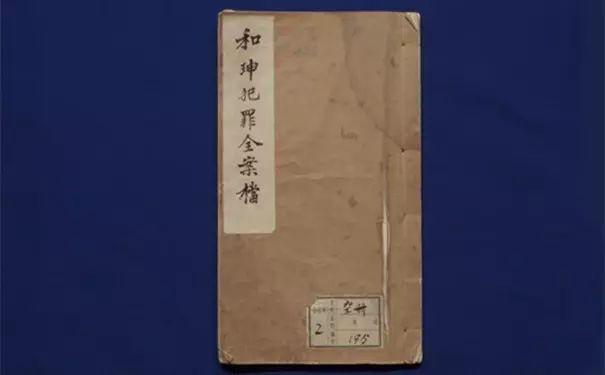 和珅犯罪全案檔
2
195